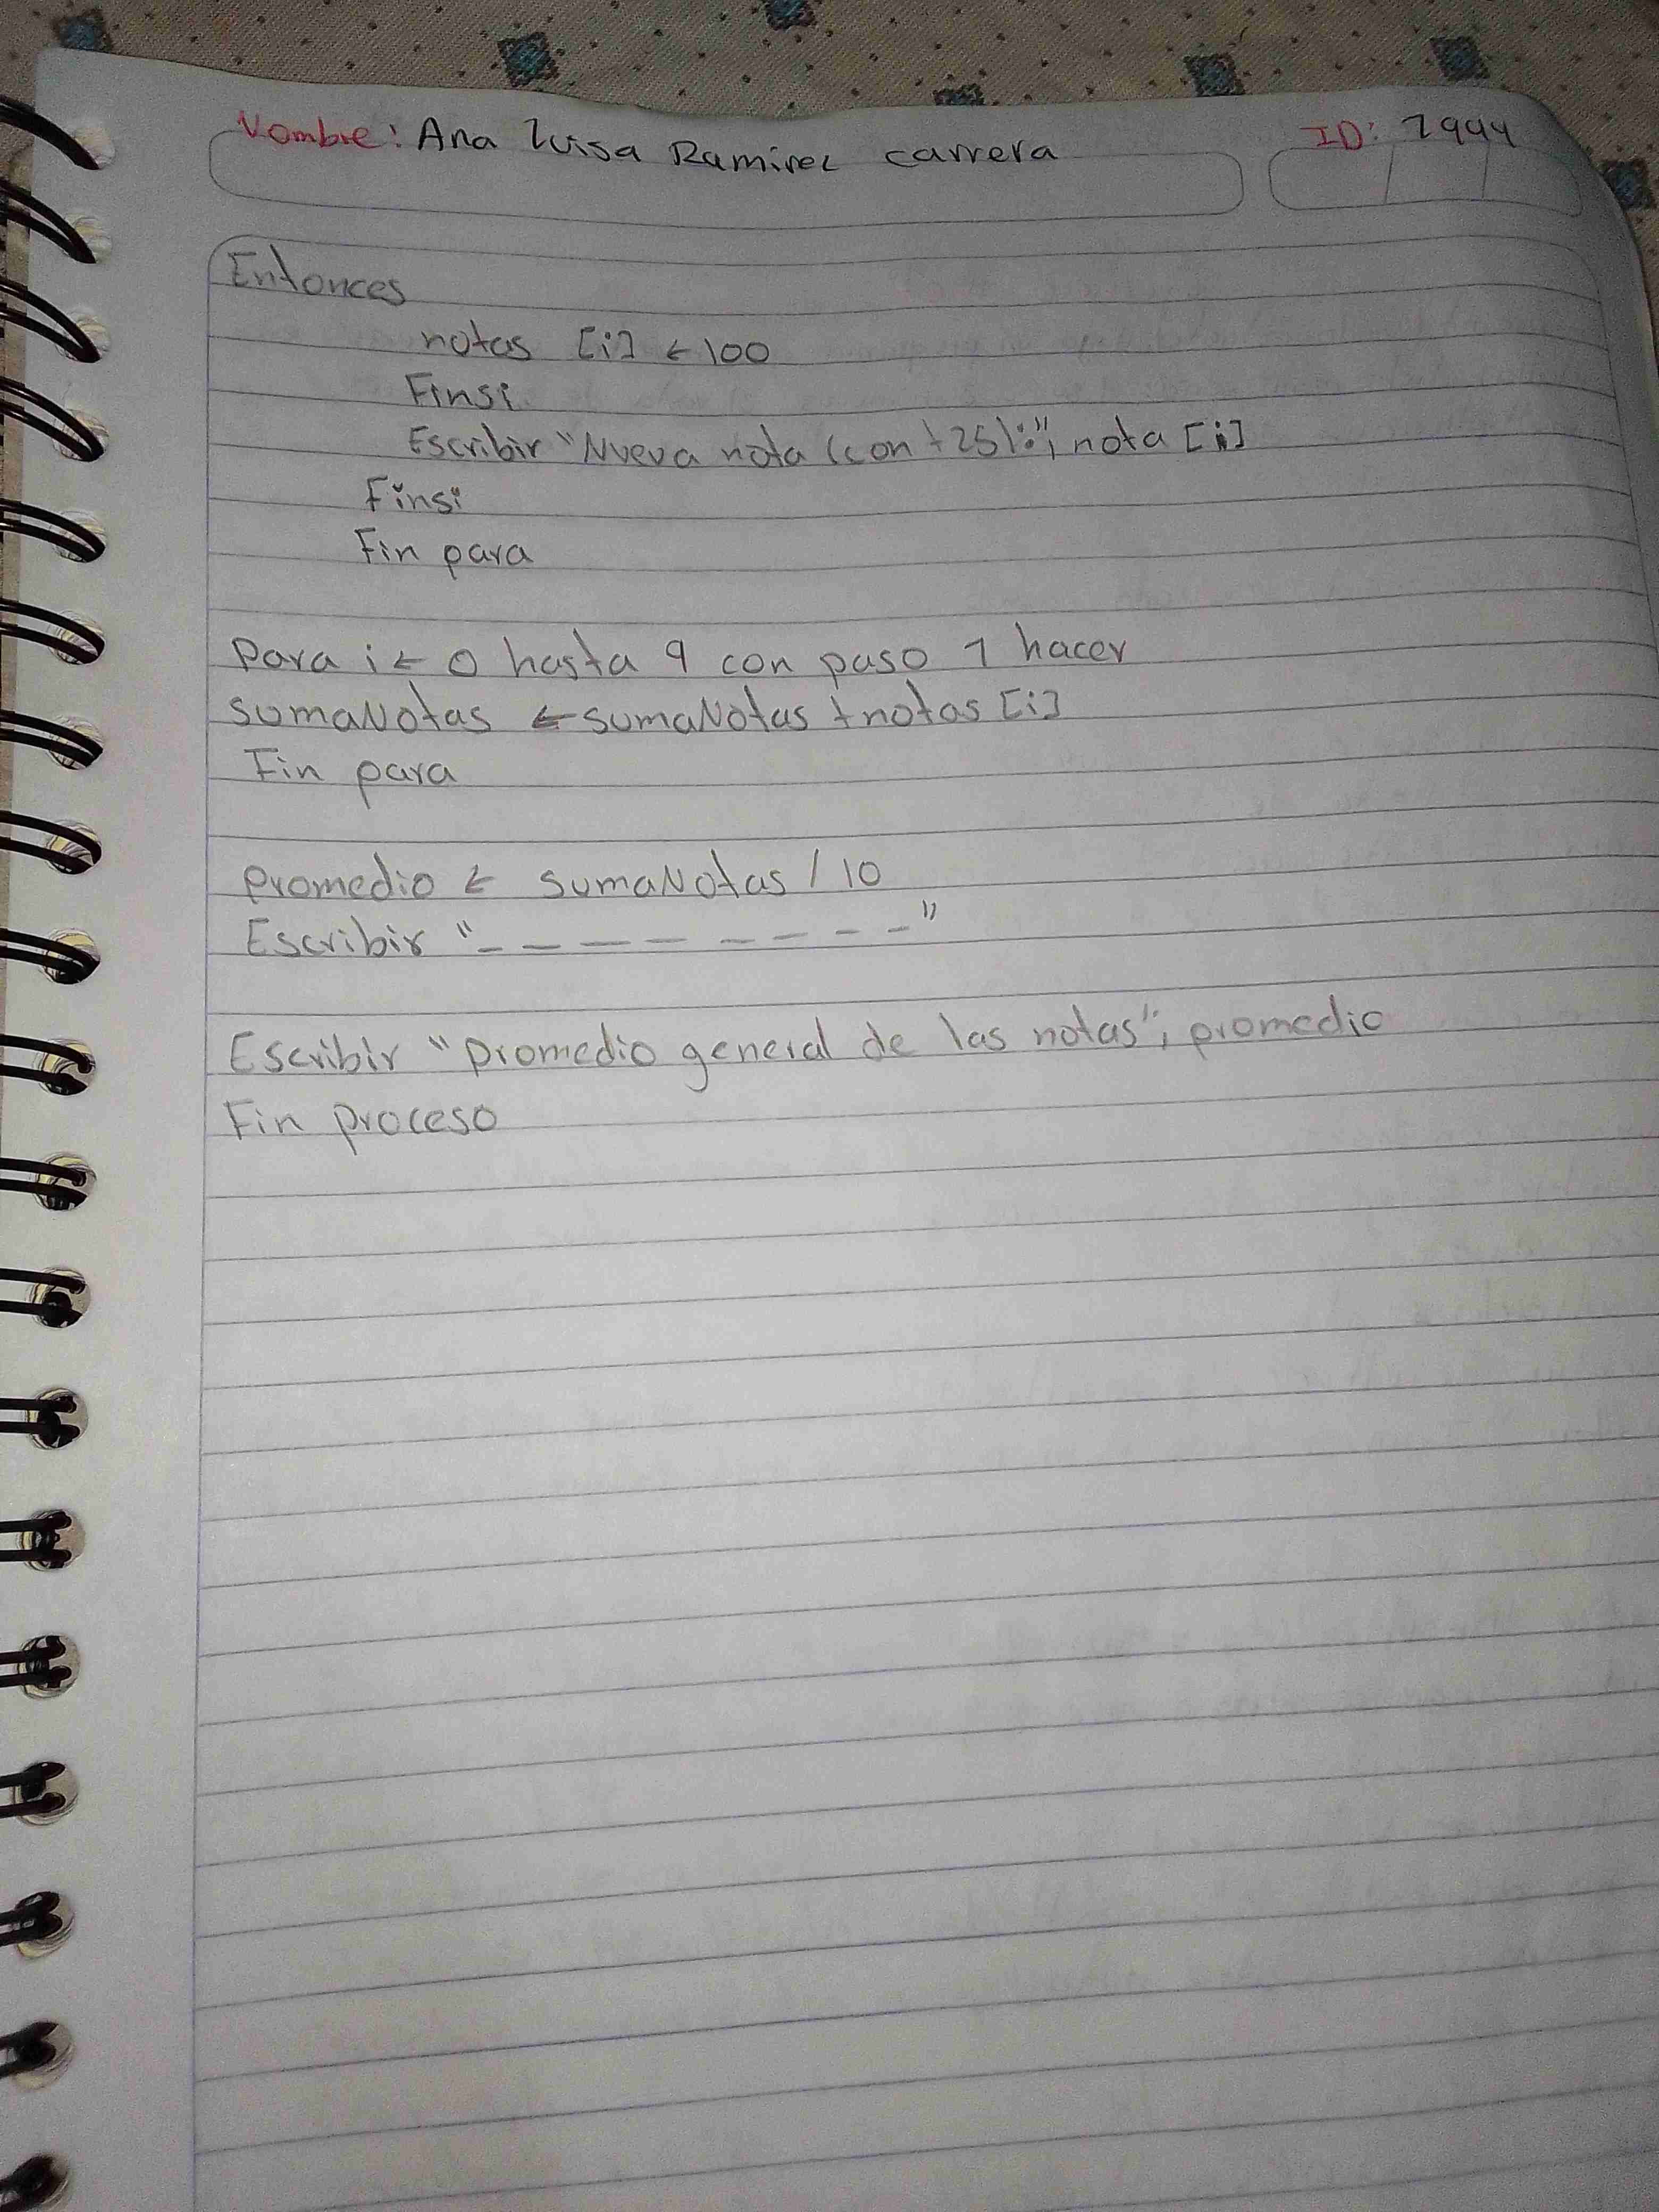 Nombre: Ana luisa Ramirez carrera ID: 7994
Entonces
notas [i] ← 100
Finsi
Escribir "Nueva nota (con +25):", nota [i]
Finsi
Fin para
Para i ← 0 hasta 9 con paso 1 hacer
sumaNotas ← sumaNotas + notas [i]
Fin para
promedio ← sumaNotas / 10
Escribir "_ _ _ _ _ _ _ _"
Escribir "promedio general de las notas", promedio
Fin proceso